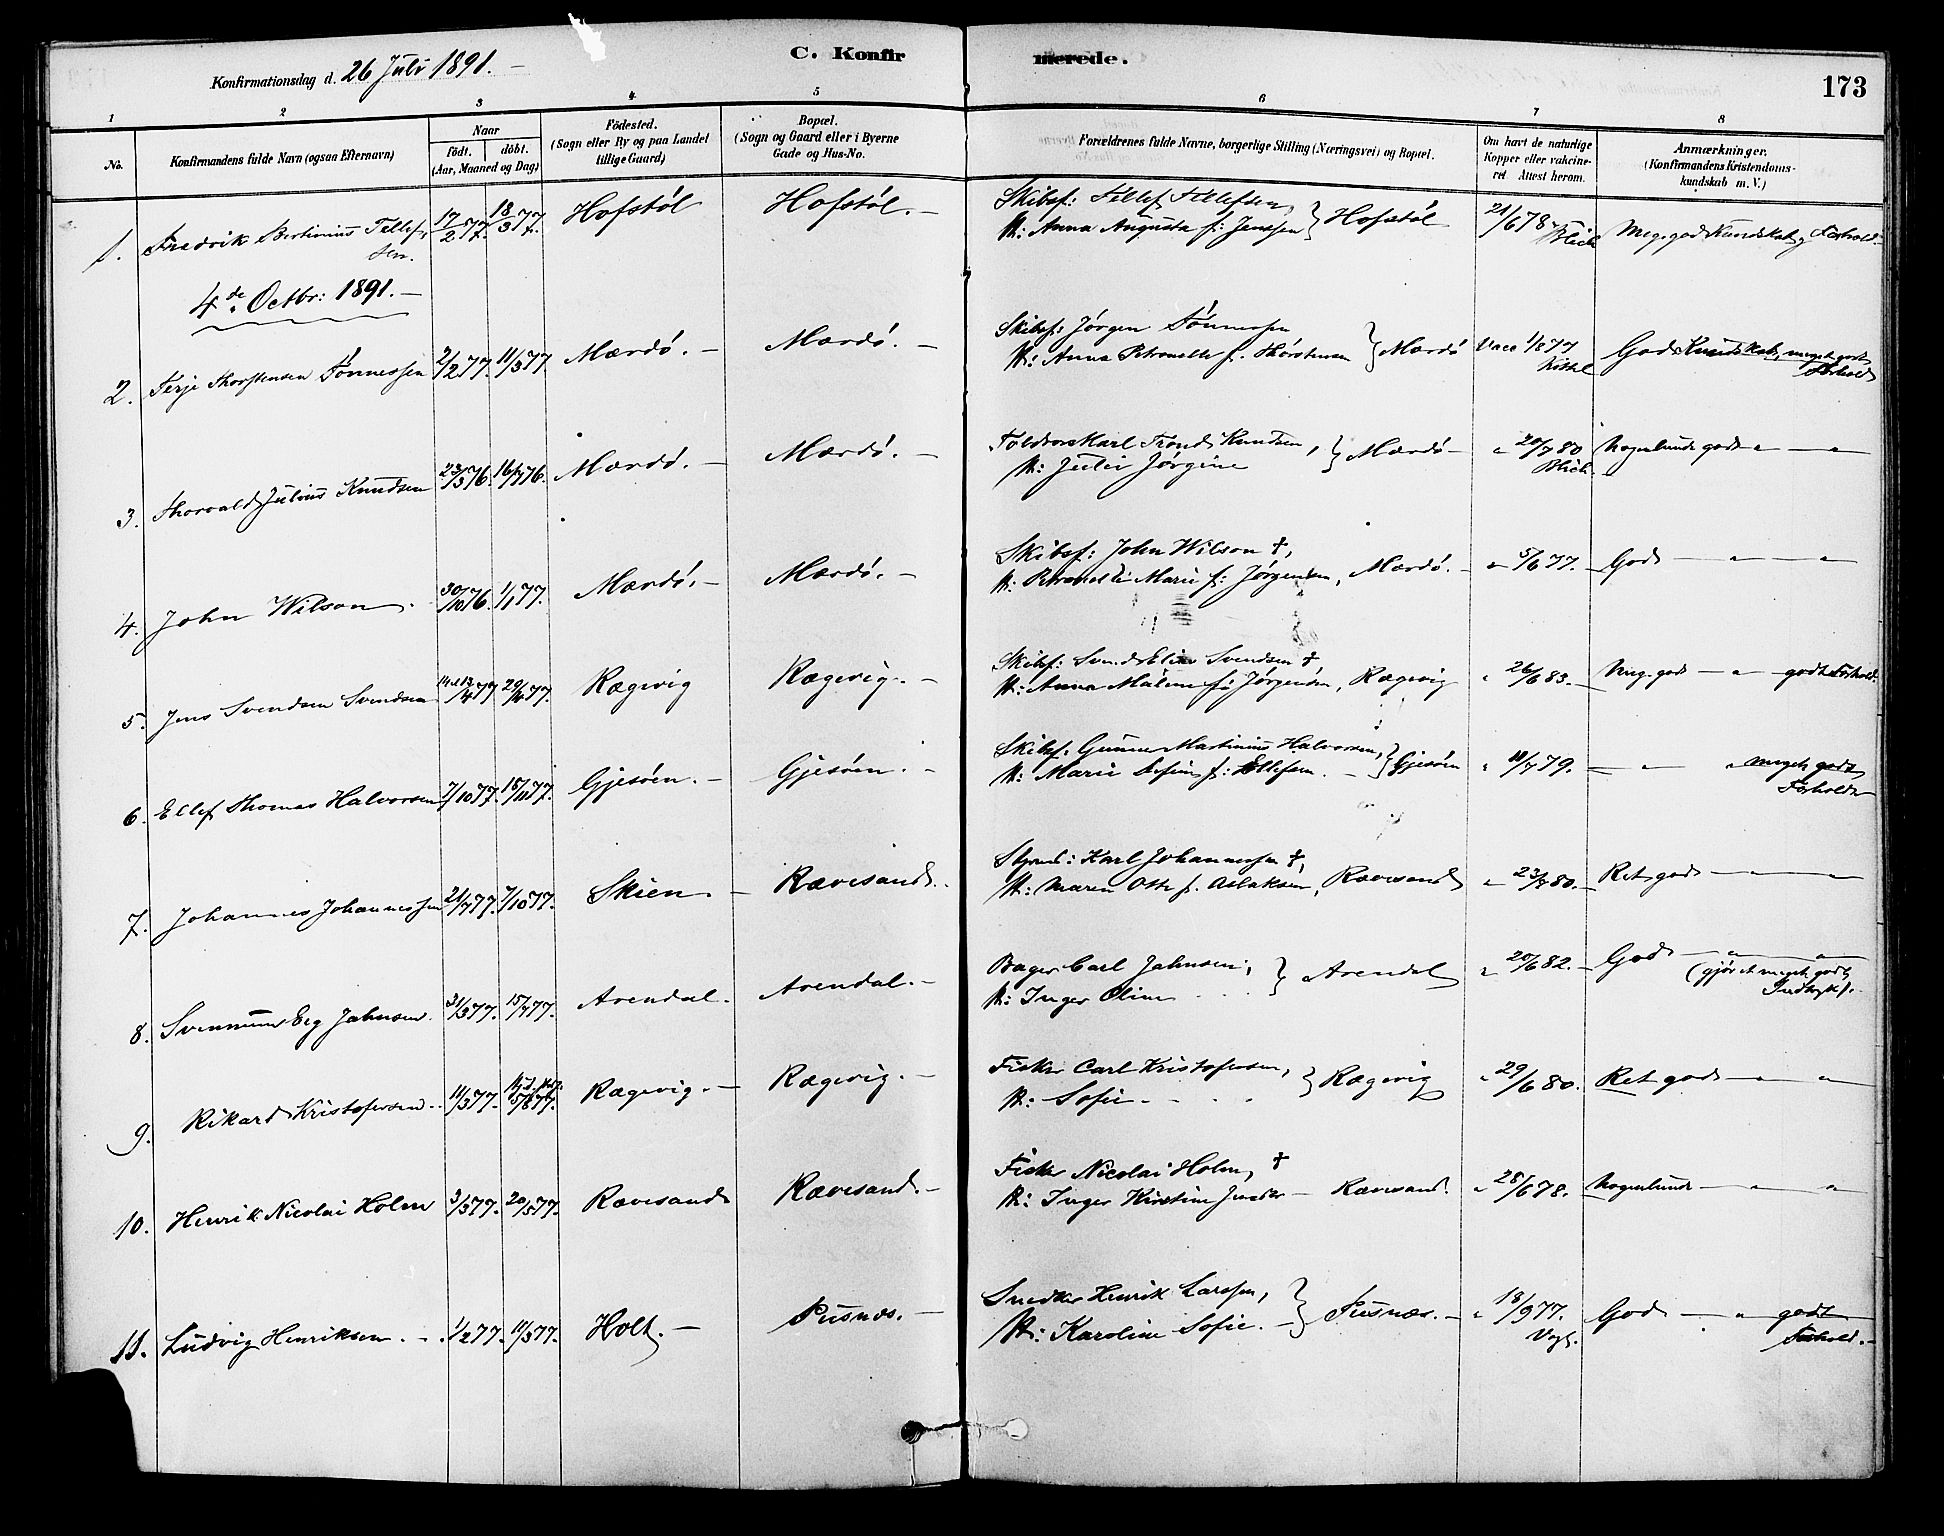 C. Konfirmerede.
173
Konfirmationsdag d. 26 Juli 1891. —
1 2 3 4 5 6 7 8
No. Konfirmandens fulde Navn (ogsaa Efternavn) Naar født. døbt. (Aar, Maaned og Dag) Fødested. (Sogn eller By og paa Landet tillige Gaard) Bopæl. (Sogn og Gaard eller i Byerne Gade og Hus-No. Forældrenes fulde Navne, borgerlige Stilling (Næringsvei) og Bopæl. Om havt de naturlige Kopper eller vakcineret. Attest herom. Anmærkninger. (Konfirmandens Kristendomskundskab m. V.)
1. Fredrik Bertinius Tellefsen. 17/2 77. 18/3 77. Hofstöl Hofstöl. — Skibsf: Tellef Tellefsen H: Anna Augusta f: Jenssen } Hofstöl 21/6 78 Blich Meg. god Kundskab, Forhold. —
4de Octbr: 1891. —
2. Terje Thorstensen Tönnessen 2/2 77. 11/3 77 Mærdö. — Mærdö. — Skibsf: Jörgen Tönnessen H: Anna Petronelle f. Thorstensen } Mærdö Vacc 1/8 77 Kittel God Kundskab, meget godt Forhold
3. Thorvald Julius Knudsen 23/5 76. 16/7 76. Mærdö. — Mærdö. — Toldros Karl Trond Knudsen, H: Julie Jörgine } Mærdö — " 20/7 80 Blich. Nogenlunde god — " —
4. John Wilson. 30/10 76. 1/1 77. Mærdö. — Mærdö. — Skibsf: John Wilson †, H: Petronelle Marie f: Jörgensen, Mærdö. — " 5/6 77. — God — " — "
5. Jens Svendsen Svendsen /4 77 29/4 77. Rægevig Rægevig. — Skibsf: Svend Elias Svendsen †, H: Anna Malene f: Jörgensen, Rægevig " 26/6 83. — Meg. god — " — godt Forhold.
6. Ellef Thomas Halvorsen 7/10 77. 18/11 77. Gjesöen. — Gjesöen. — Skibsf: Gunner Martinius Halvorsen, H: Marie Sofie f: Ellefsen. — } Gjesöen " 18/7 79. — " " meget godt Forhold
7. Johannes Johannessen 21/7 77. 7/10 77. Skien. — Rævesand. Styrm: Karl Johannessen †, H: Maren Otte f. Aslaksen, Rævesand " 23/7 80. — Ret god — " —
8. Svennum Eeg Jahnsen. 31/3 77. 15/7 77. Arendal. Arendal. — Bager Carl Jahnsen, H: Inger Oline } Arendal " 20/6 82. — God — " — " (gjör et meget godt Indtryk).
9. Rikard Kristofersen. 11/3 77. 15/8 77. Rægevig. — Rægevig. — Fisker Carl Kristofersen, H: Sofie } Rægevig " 29/6 80. Ret god — " — "
10. Henrik Nicolai Holm 3/3 77. 20/5 77. Rævesand Rævesand. — Fisker Nicolai Holm, † H: Inger Kirstine — Rævesand. " 28/6 78. Nogenlunde — " — "
11. Ludvig Henriksen. — 1/2 77. 11/3 77. Holt. — Pusnæs. — Snedker Henrik Larssen, H: Karoline Sofie. — } Pusnæs. — " 18/9 77. Vogt. God — " — godt Forhold. —